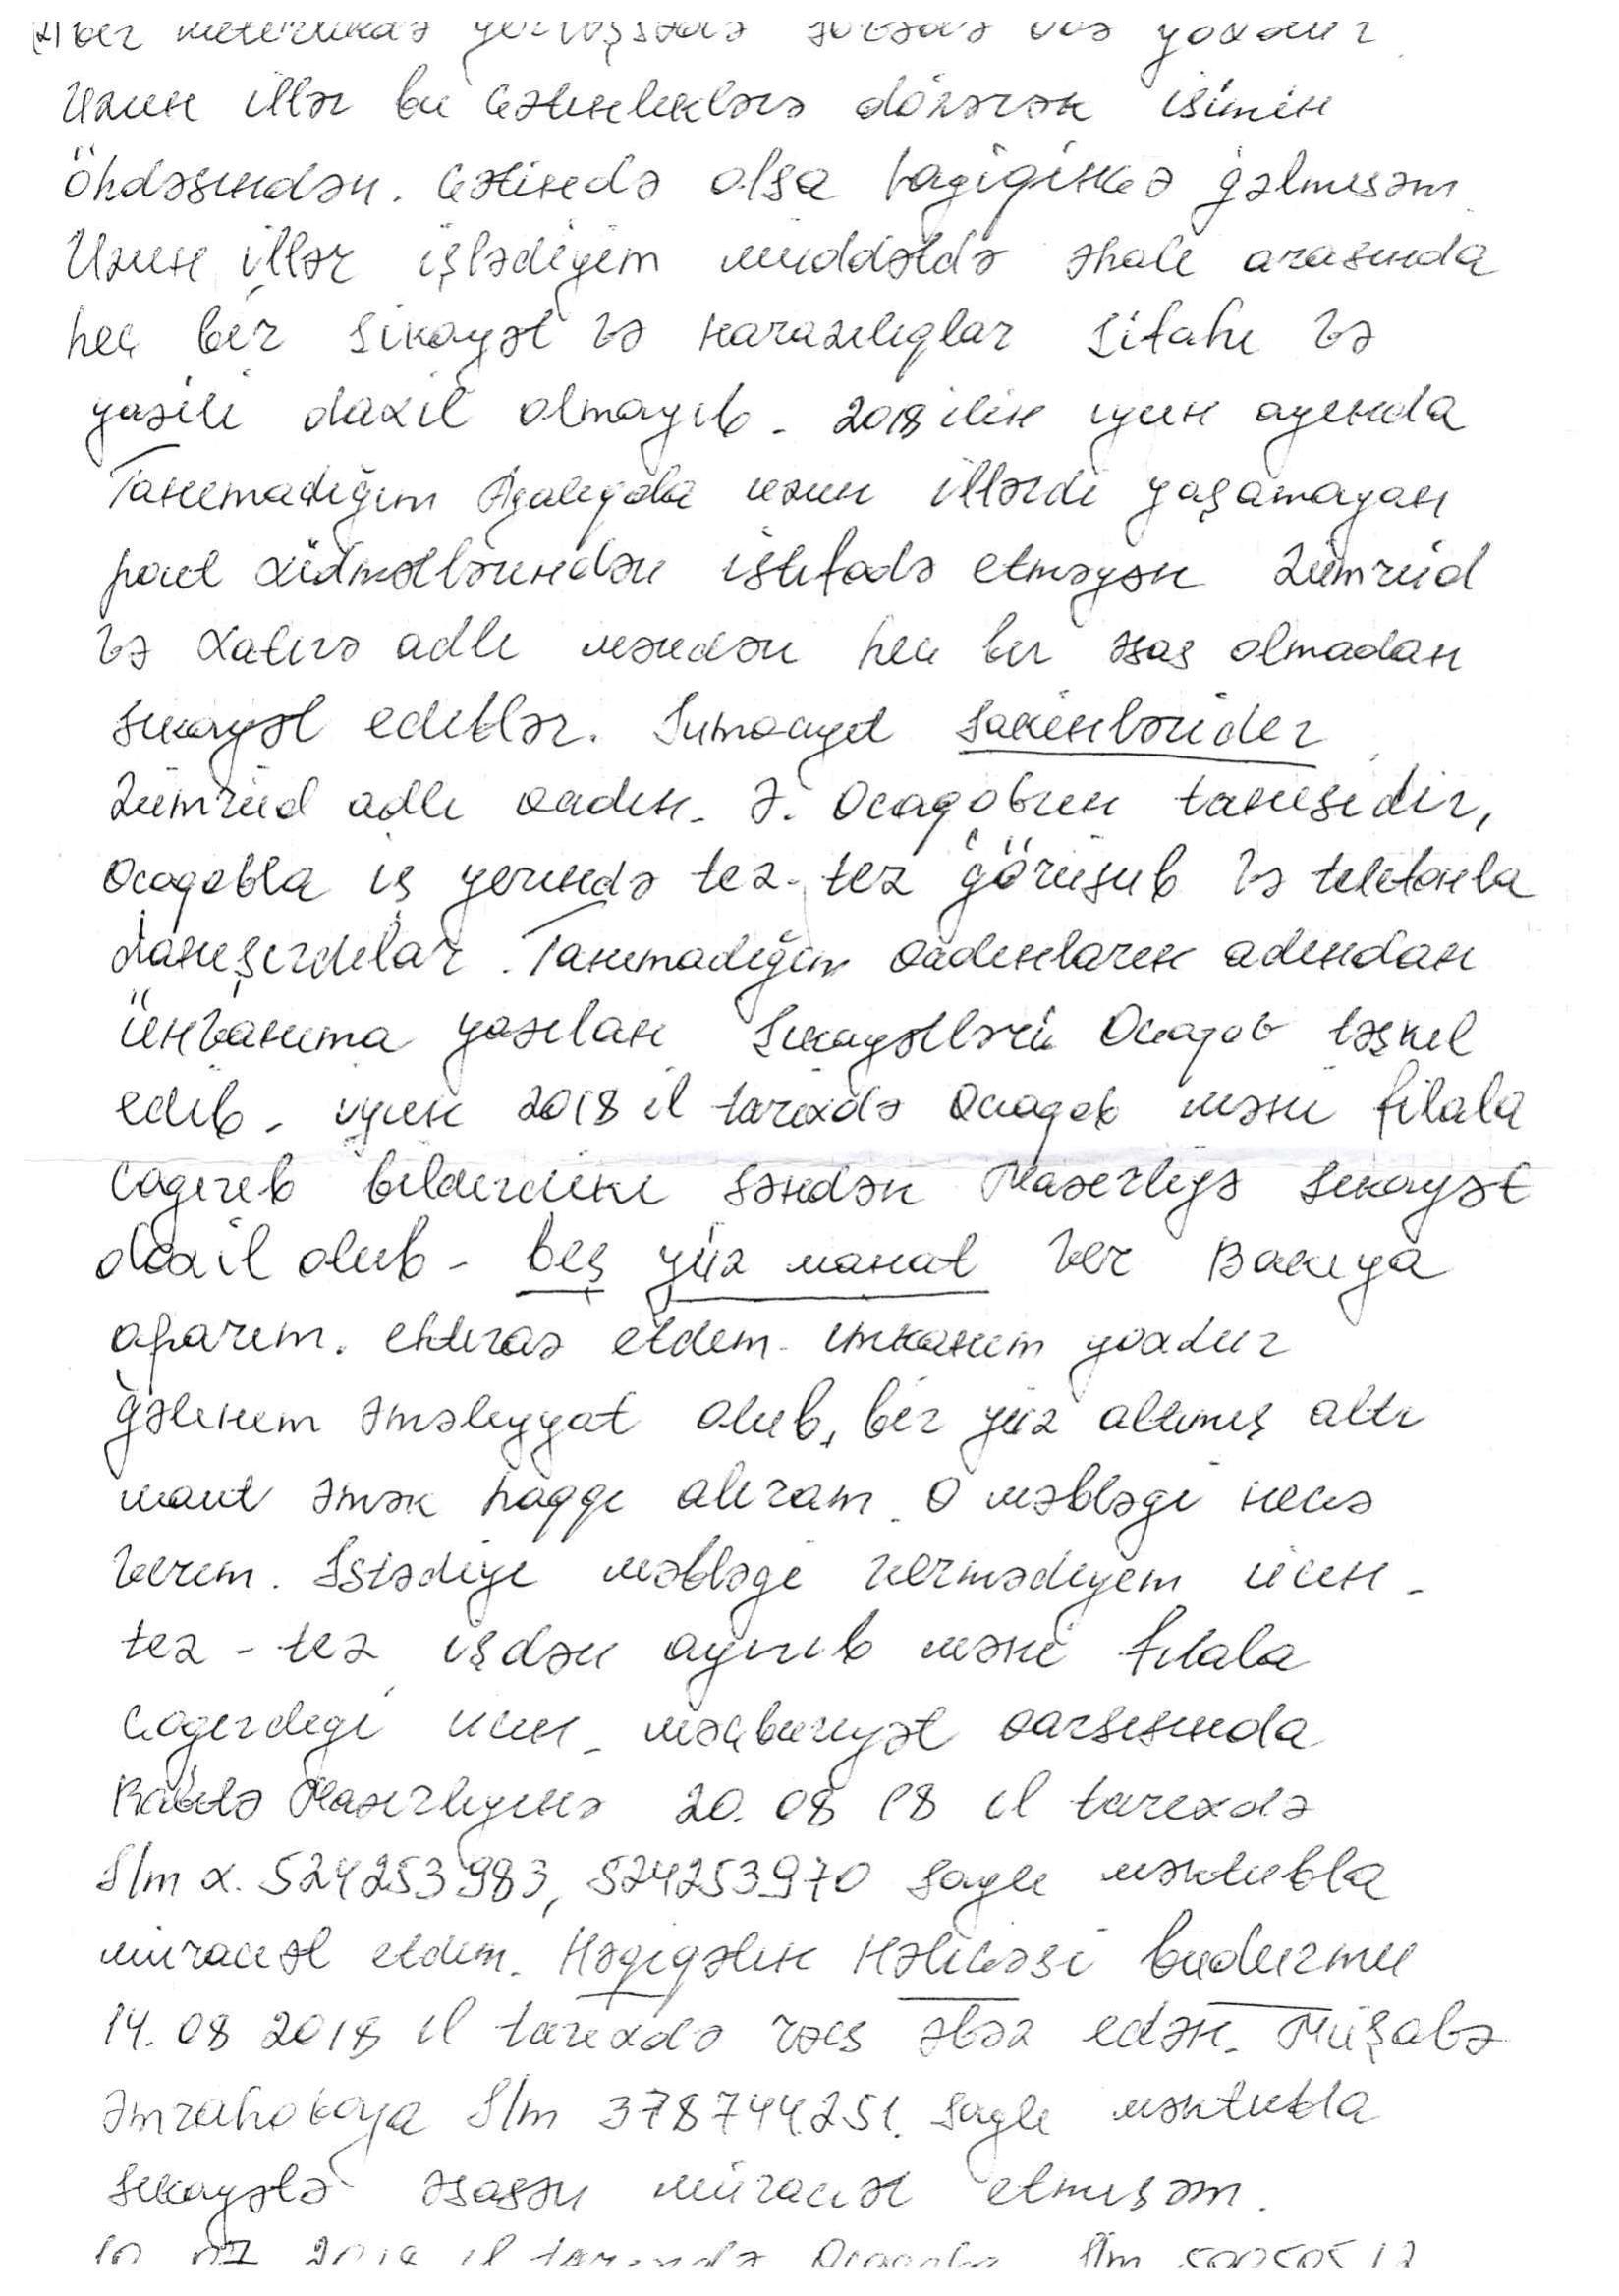 Uzun illər bu çətinliklərə dözərək işimin
öhdəsindən. çətində olsa layiqincə gəlmişəm
Uzun illər işlədiyim müddətdə əhali arasında
heç bir şikayət və narazılıqlar şifahi və
yazili daxil olmayıb. 2018 ilin iyun ayında
Tanımadığım uzun illərdi yaşamayan
poçt xidmətlərindən istifadə etməyən Zümrüd
və Xatirə adlı məndən heç bir əsas olmadan
şikayət ediblər. Sumqayıt sakinləridir
Zümrüd adlı qadın. Ə. Ocaqovun tanışıdir,
Ocaqovla iş yerində tez-tez görüşüb və telefonla
danışırdılar. Tanımadığım qadınların adından
ünvanıma yazılan şikayətləri Ocaqov təşkil
edib. iyun 2018 il tarixdə Ocaqov məni filala
çagırıb bildirdiki səndən Nazirliyə şikayət
daxil olub. beş yüz manat ver Bakıya
aparım. etiraz etdim. imkanım yoxdur
gəlinim əməliyyat olub, bir yüz altmış altı
manat əmək haqqı alıram. O məbləgi necə
verim. İstədiyi məbləgi vermədiyim üçün.
tez-tez işdən ayırıb məni filala
çagırdıgi üçün. məcburiyət qarşısında
Rabitə Nazirliyinə 20.08 18 il tarixdə
S/m x. 524253983, 524253970 saylı məktubla
müraciət etdim. Həqiqətin nəticəsi budurmu
14.08 2018 il tarixdə rəis əvəz edən. Müşabə
Əmrahovaya S/m 378744251. saylı məktubla
şikayətə əsasən müraciət etmişəm.